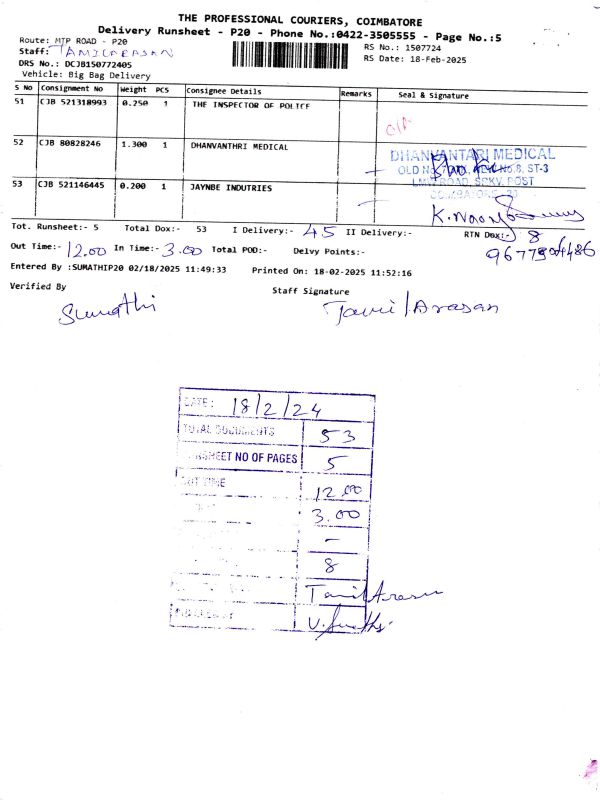 THE PROFESSIONAL COURIERS, COIMBATORE
Delivery Runsheet - P20 - Phone No.:0422-3505555 - Page No.:5
Route: MTP ROAD - P20
RS No.: 1507724
Staff: TAMILARASAN
RS Date: 18-Feb-2025
DRS No.: DCJB150772405
Vehicle: Big Bag Delivery
S No Consignment No Weight PCS Consignee Details Remarks Seal & Signature
51 CJB 521318993 0.250 1 THE INSPECTOR OF POLICE
52 CJB 80828246 1.300 1 DHANVANTHRI MEDICAL
DHANVANTARI MEDICAL
OLD No. ST-3
POST
53 CJB 521146445 0.200 1 JAYNBE INDUTRIES
Tot. Runsheet:- 5 Total Dox:- 53 I Delivery:- 45 II Delivery:- RTN Dox:- 8
Out Time:- 12.00 In Time:- 3.00 Total POD:- Delvy Points:-
Entered By :SUMATHIP20 02/18/2025 11:49:33 Printed On: 18-02-2025 11:52:16
Verified By Staff Signature
Sumathi Tamil Arasan
DATE: 18/2/24
TOTAL DOCUMENTS 53
SHEET NO OF PAGES 5
OUT TIME 12.00
3.00
-
8
Tamil Arasan